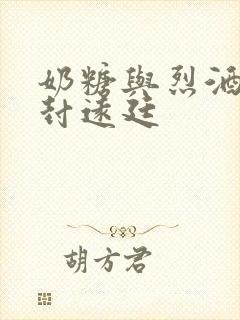 奶糖與烈酒
封遠廷
胡方君